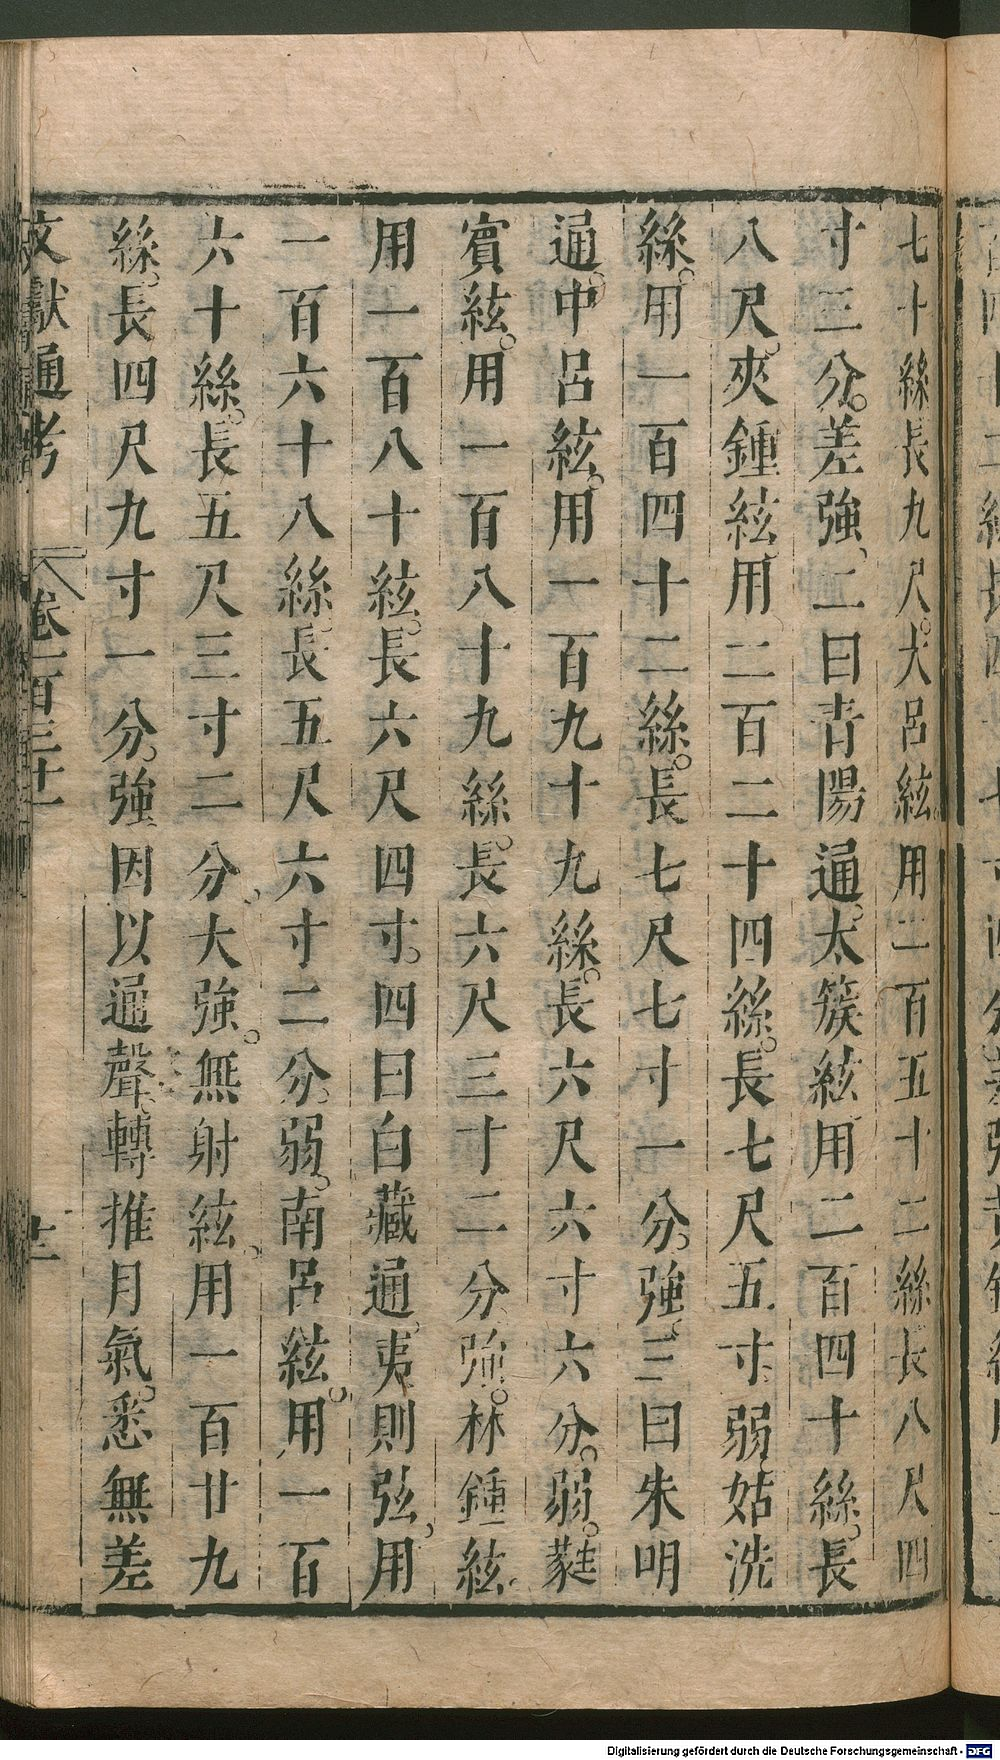 七十絲長九尺大呂絃用二百五十二絲長八尺四
寸三分差強二曰青陽通太簇絃用二百四十絲長
八尺夾鍾絃用二百二十四絲長七尺五寸弱姑洗
絲用一百四十二絲長七尺七寸一分強三曰朱明
通中呂絃用一百九十九絲長六尺六寸六分弱蕤
賓絃用一百八十九絲長六尺三寸二分強林鍾絃
用一百八十絃長六尺四寸四曰白藏通夷則弦用
一百六十八絲長五尺六寸二分弱南呂絃用一百
六十絲長五尺三寸二分大強無射絃用一百廿九
絲長四尺九寸一分強因以通聲轉推月氣悉無差
文獻通考 卷一百三十一 廿二
Digitalisierung gefördert durch die Deutsche Forschungsgemeinschaft - DFG